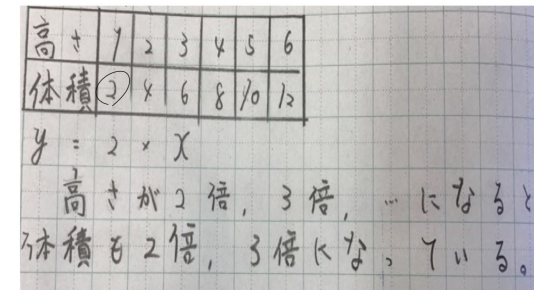 高さ 1 2 3 4 5 6
体積 2 4 6 8 10 12
y = 2 × x
高さが2倍, 3倍, …になると
体積も2倍, 3倍になっている。